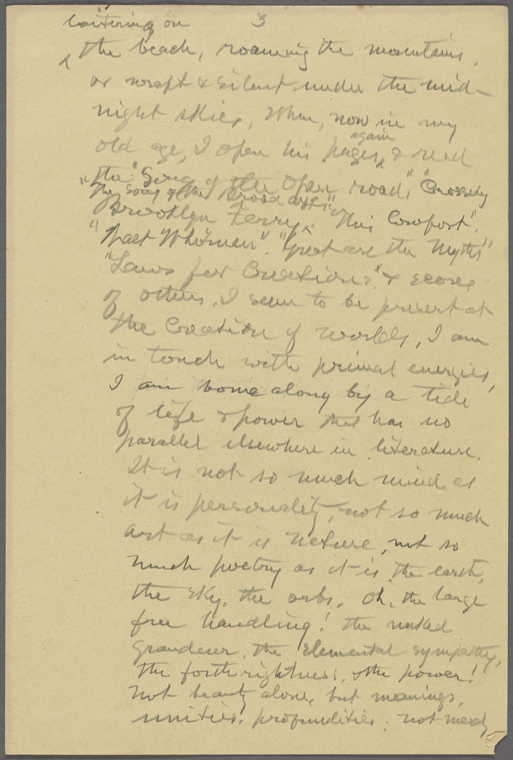 loitering on 3
the beach, roaming the mountains,
or rapt & silent under the mid-
night skies, When, now in my
again
old age, I open his pages, & read
the "Song of the Open road", "Crossing
"The Song of the Broad axe"
Brooklyn Ferry", "This Compost".
"Walt Whitman". "Great are the Myths"
"Laws for Creations", & scores
of others, I seem to be present at
the Creation of worlds, I am
in touch with primal energies,
I am borne along by a tide
of life & power that has no
parallel elsewhere in literature.
It is not so much mind as
it is personality, not so much
art as it is Nature, not so
much poetry as it is the earth,
the sky, the orbs. Oh, the large
free handling! the naked
grandeur, the elemental sympathy,
the forthrightness, & the power!
Not beauty alone, but meanings,
unities, profundities; not merely